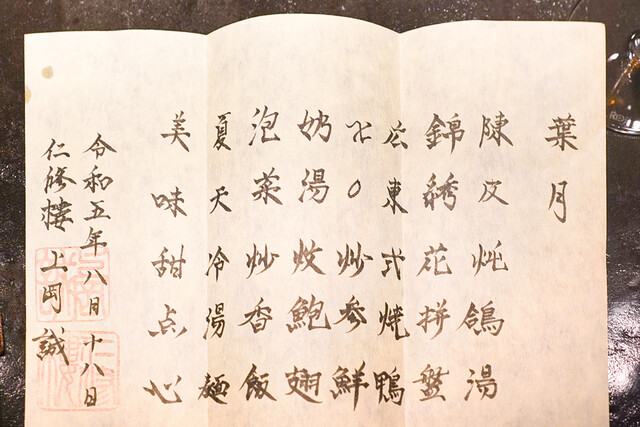 葉月
陳皮炖鴿湯
錦綉花拼盤
広東式焼鴨
XO炒参鮮
奶湯炆鮑翅
泡菜炒香飯
夏天冷湯麺
美味甜点心
令和五年八月十八日
仁修樓 上岡誠